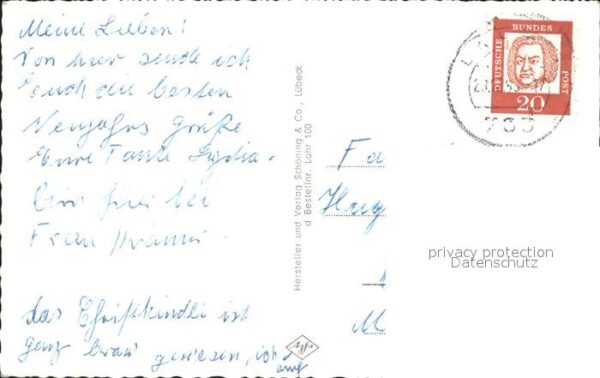 Meine Lieben!
Von hier sende ich
Euch die besten
Neujahrs Grüße
Eure Tante Lydia.
bin hier bei
Frau
das Christkindli ist
ganz brav gewesen, ich
auch
Hersteller und Verlag Schöning & Co., Lübeck
d Bestellnr. Lahr 100
Fa
Hug
M
DEUTSCHE BUNDES POST
20
763
privacy protection
Datenschutz